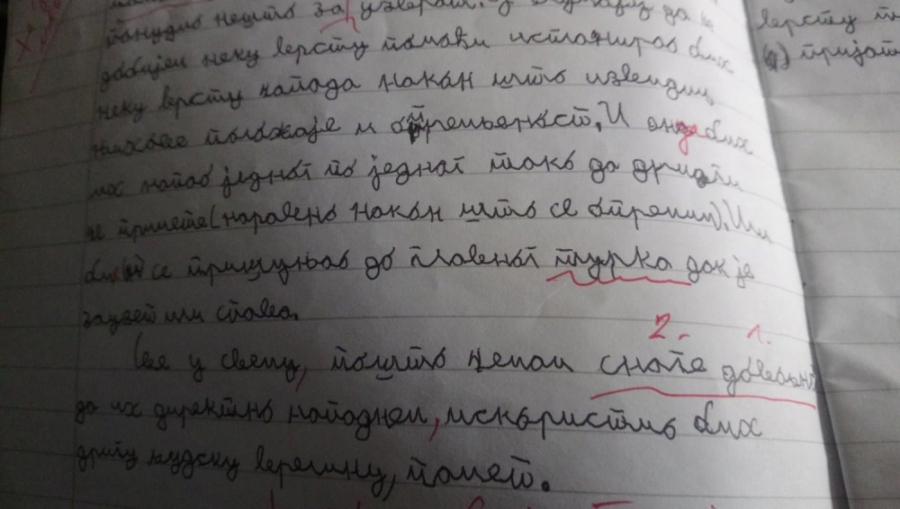 понудио нешто за узврат. да не
добијем неку врсту помоћи испланирао бих
неку врсту напада након што извидим
њихове положаје и опремљеност, И онда бих
их напао једног по једног тако да други
не примете (наравно након што се опремим). Или
бих се пришуњао до главног турка док је
заузет или спава.
Све у свему, пошто немам снаге довољно
да их директно нападнем, искористио бих
другу људску врлину, памет.
2. 1.
врсту
пријат